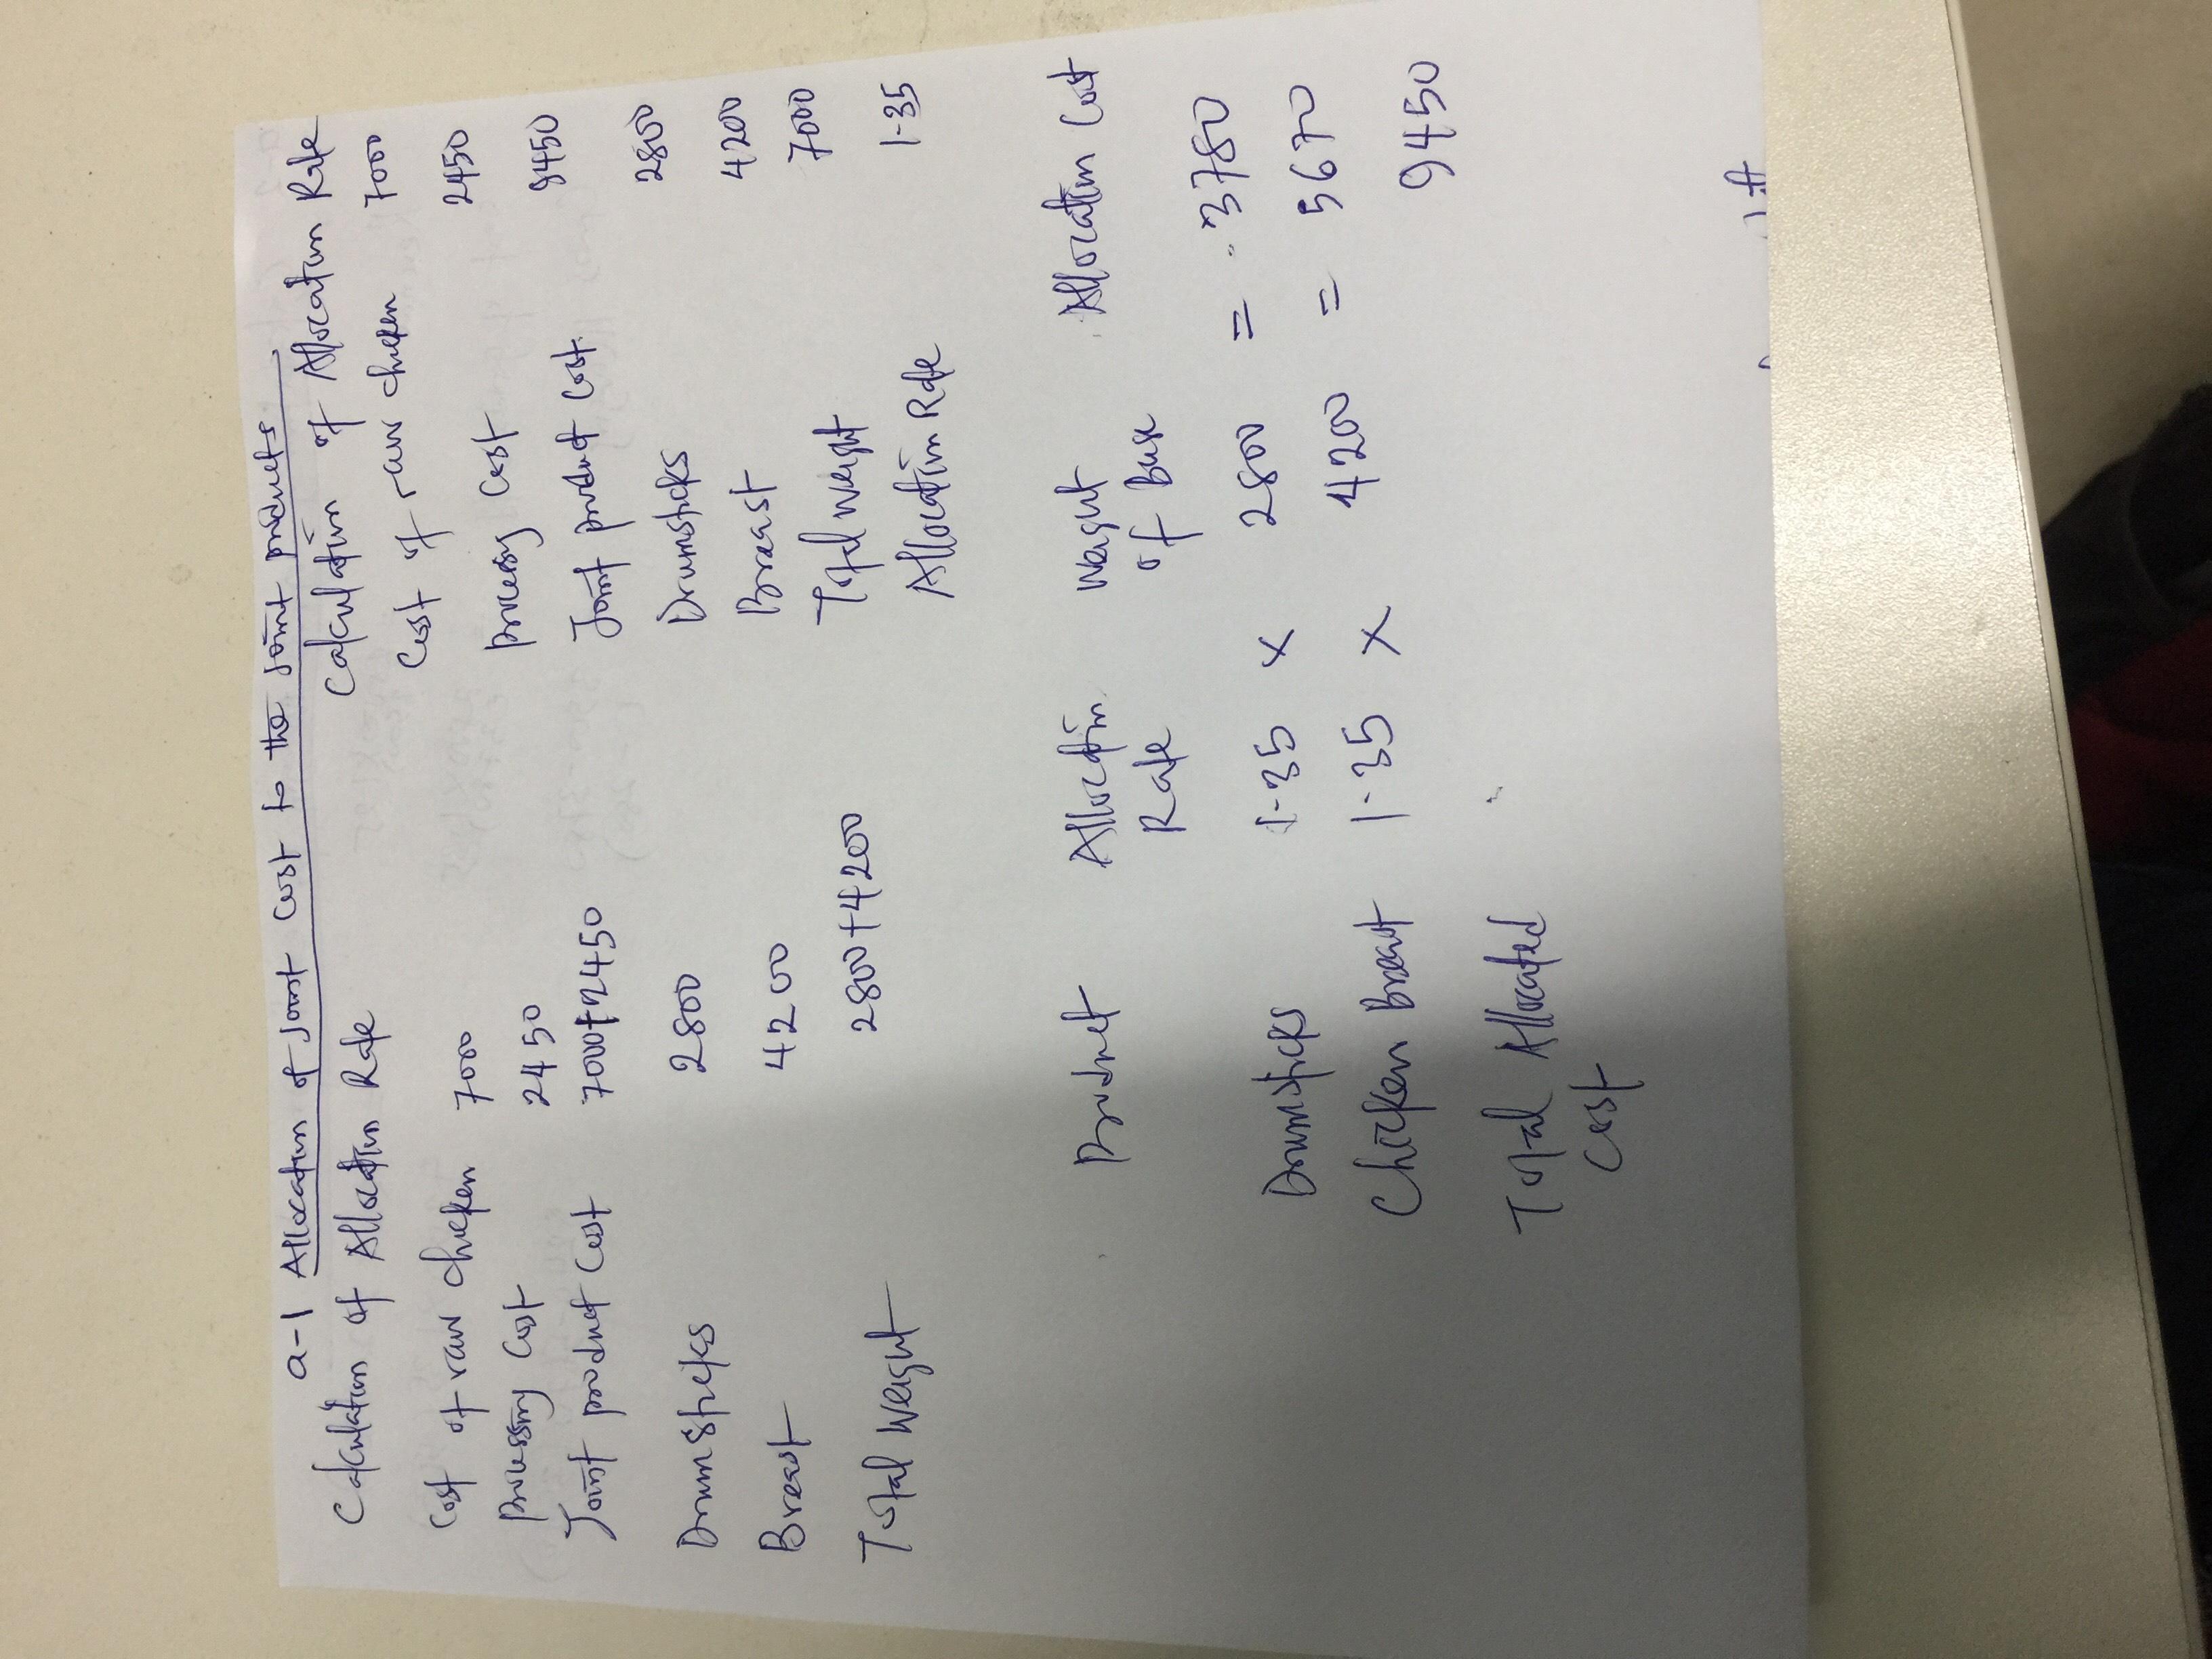 a-1 Allocation of Joint Cost to the Joint products
Calculation of Allocation Rate Calculation of Allocation Rate
Cost of raw chicken 7000 Cost of raw chicken 7000
Processing Cost 2450 Processing Cost 2450
Joint product Cost 7000+2450 Joint product Cost 9450
Drumsticks 2800 Drumsticks 2800
Breast 4200 Breast 4200
Total Weight 2800+4200 Total Weight 7000
Allocation Rate 1.35
Product Allocation Weight Allocation Cost
Rate of Base
Drumsticks 1.35 x 2800 = 3780
Chicken Breast 1.35 x 4200 = 5670
Total Allocated 9450
Cost